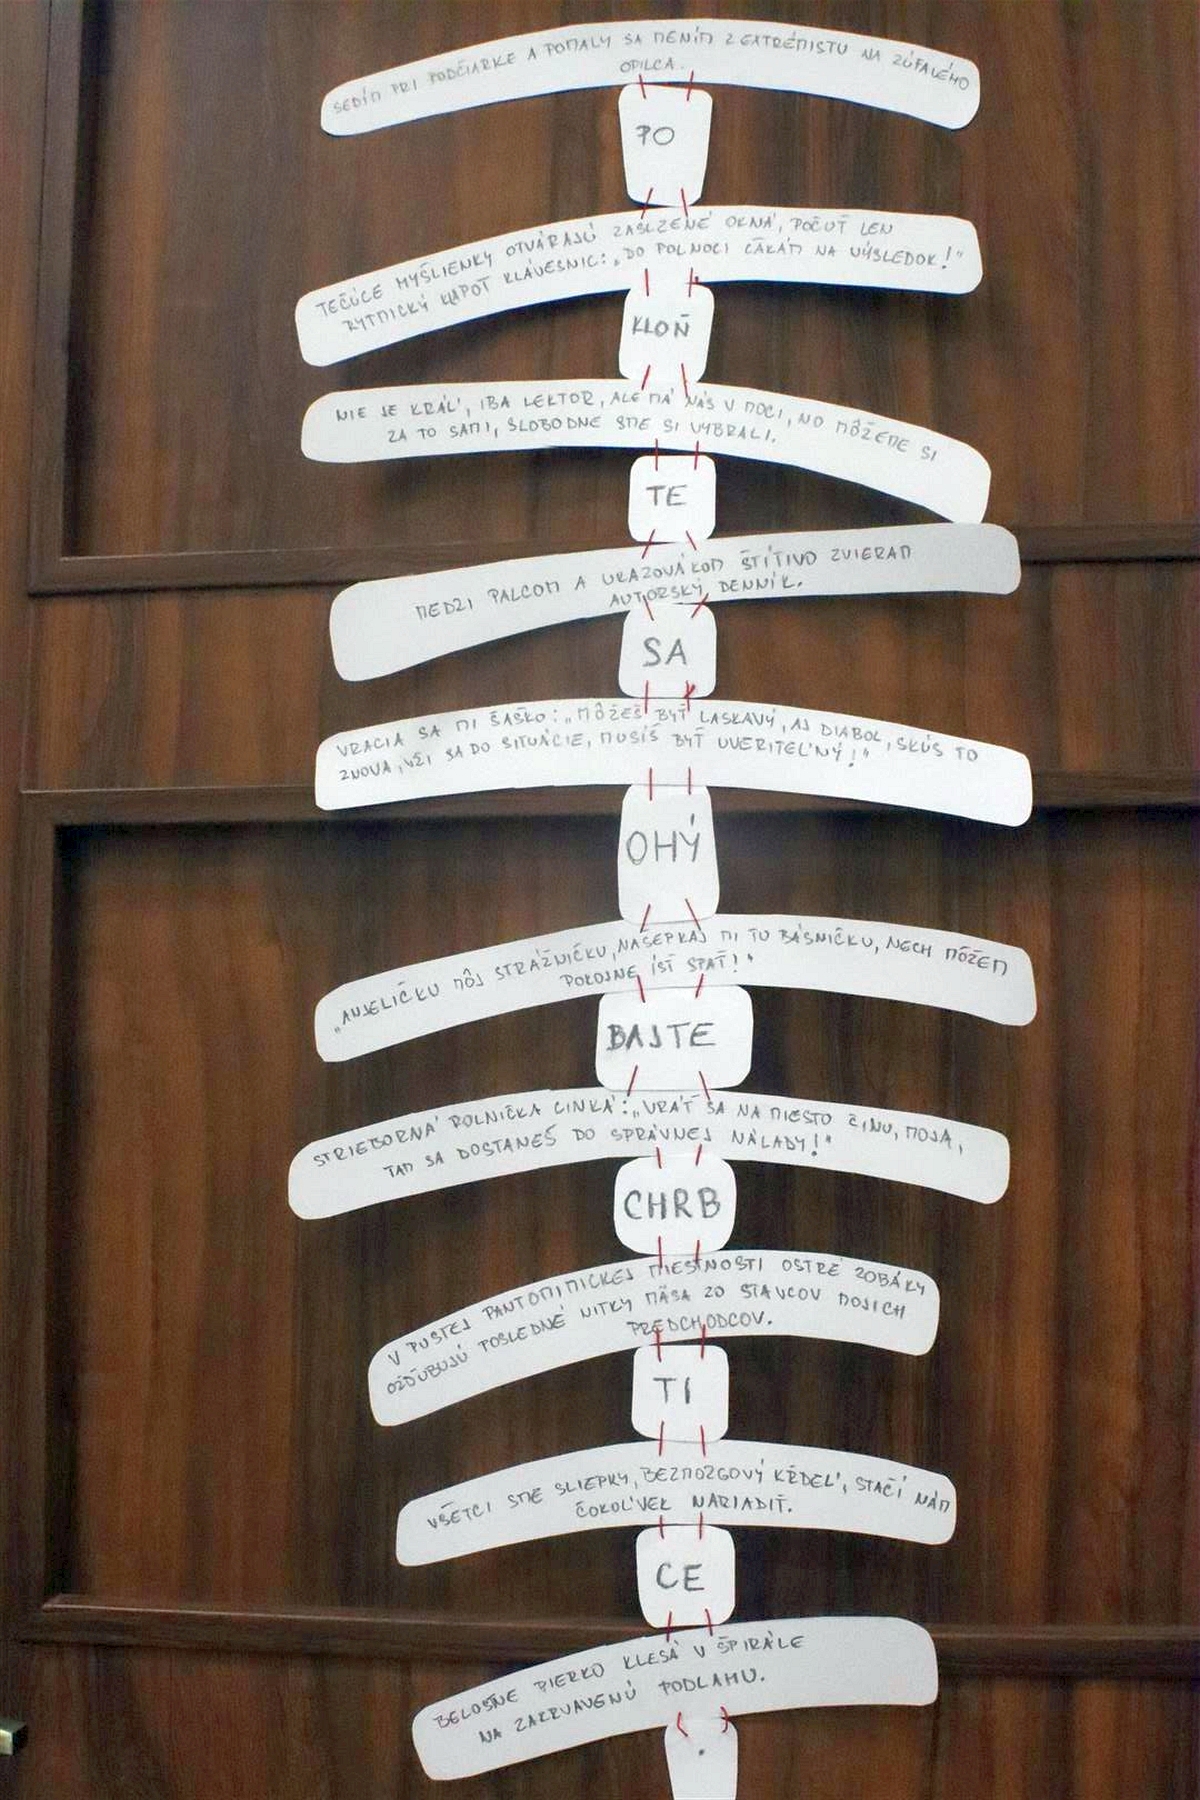 SEDÍM PRI PODČIARKE A POMALY SA MENÍM Z EXTRÉMISTU NA ZÚFALÉHO
OPILCA.
PO
TEČÚCE MYŠLIENKY OTVÁRAJÚ ZASLZENÉ OKNÁ, POČUŤ LEN
RYTMICKÝ KLAPOT KLÁVESNIC: „DO POLNOCI ČAKÁM NA VÝSLEDOK!“
KLOŇ
NIE JE KRÁĽ, IBA LEKTOR, ALE MÁ NÁS V MOCI, NO MÔŽEME SI
ZA TO SAMI, SLOBODNE SME SI VYBRALI.
TE
MEDZI PALCOM A UKAZOVÁKOM ŠTÍTIVO ZVIERAM
AUTORSKÝ DENNÍK.
SA
VRACIA SA MI ŠAŠKO: „MÔŽEŠ BYŤ LASKAVÝ, AJ DIABOL, SKÚS TO
ZNOVA, VŽI SA DO SITUÁCIE, MUSÍŠ BYŤ UVERITEĽNÝ!“
OHÝ
„ANJELIČKU MÔJ STRÁŽNIČKU, NAŠEPKAJ MI TU BÁSNIČKU, NECH MÔŽEM
POKOJNE ÍSŤ SPAŤ!“
BAJTE
STRIEBORNÁ ROLNIČKA CINKÁ: „VRÁŤ SA NA MIESTO ČINU, MOJA,
TAM SA DOSTANEŠ DO SPRÁVNEJ NÁLADY!“
CHRB
V PUSTEJ PANTOMIMICKEJ MIESTNOSTI OSTRÉ ZOBÁKY
OZĎUBUJÚ POSLEDNÉ NITKY MÄSA ZO STAVCOV MOJICH
PREDCHODCOV.
TI
VŠETCI SME SLIEPKY, BEZMOZGOVÝ KŔDEĽ, STAČÍ NÁM
ČOKOĽVEK NARIADIŤ.
CE
BELOSTNE PIERKO KLESÁ V ŠPIRÁLE
NA ZAKRVAVENÚ PODLAHU.
.